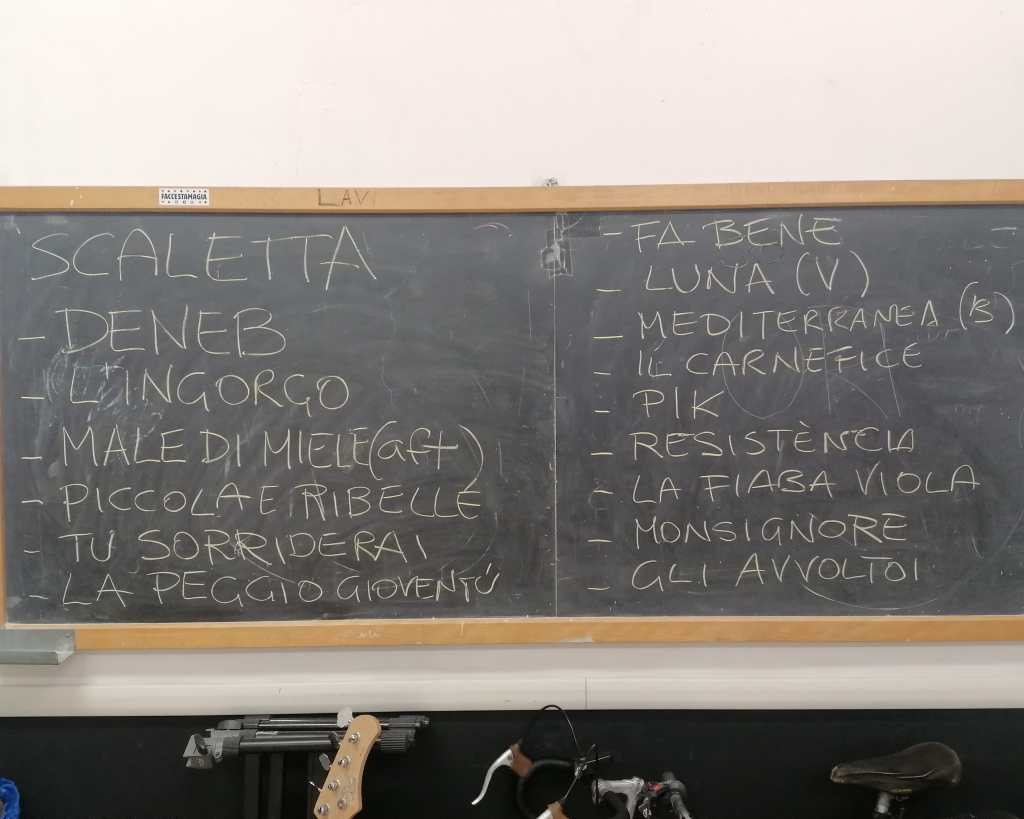 FACCESTAMAGIA
LAVI
SCALETTA
- DENEB
- L'INGORGO
- MALE DI MIELE (aft)
- PICCOLA E RIBELLE
- TU SORRIDERAI
- LA PEGGIO GIOVENTÚ
- FA BENE
- LUNA (V)
- MEDITERRANEA (B)
- IL CARNEFICE
- PIK
- RESISTÈNCIA
- LA FIABA VIOLA
- MONSIGNORE
- GLI AVVOLTOI